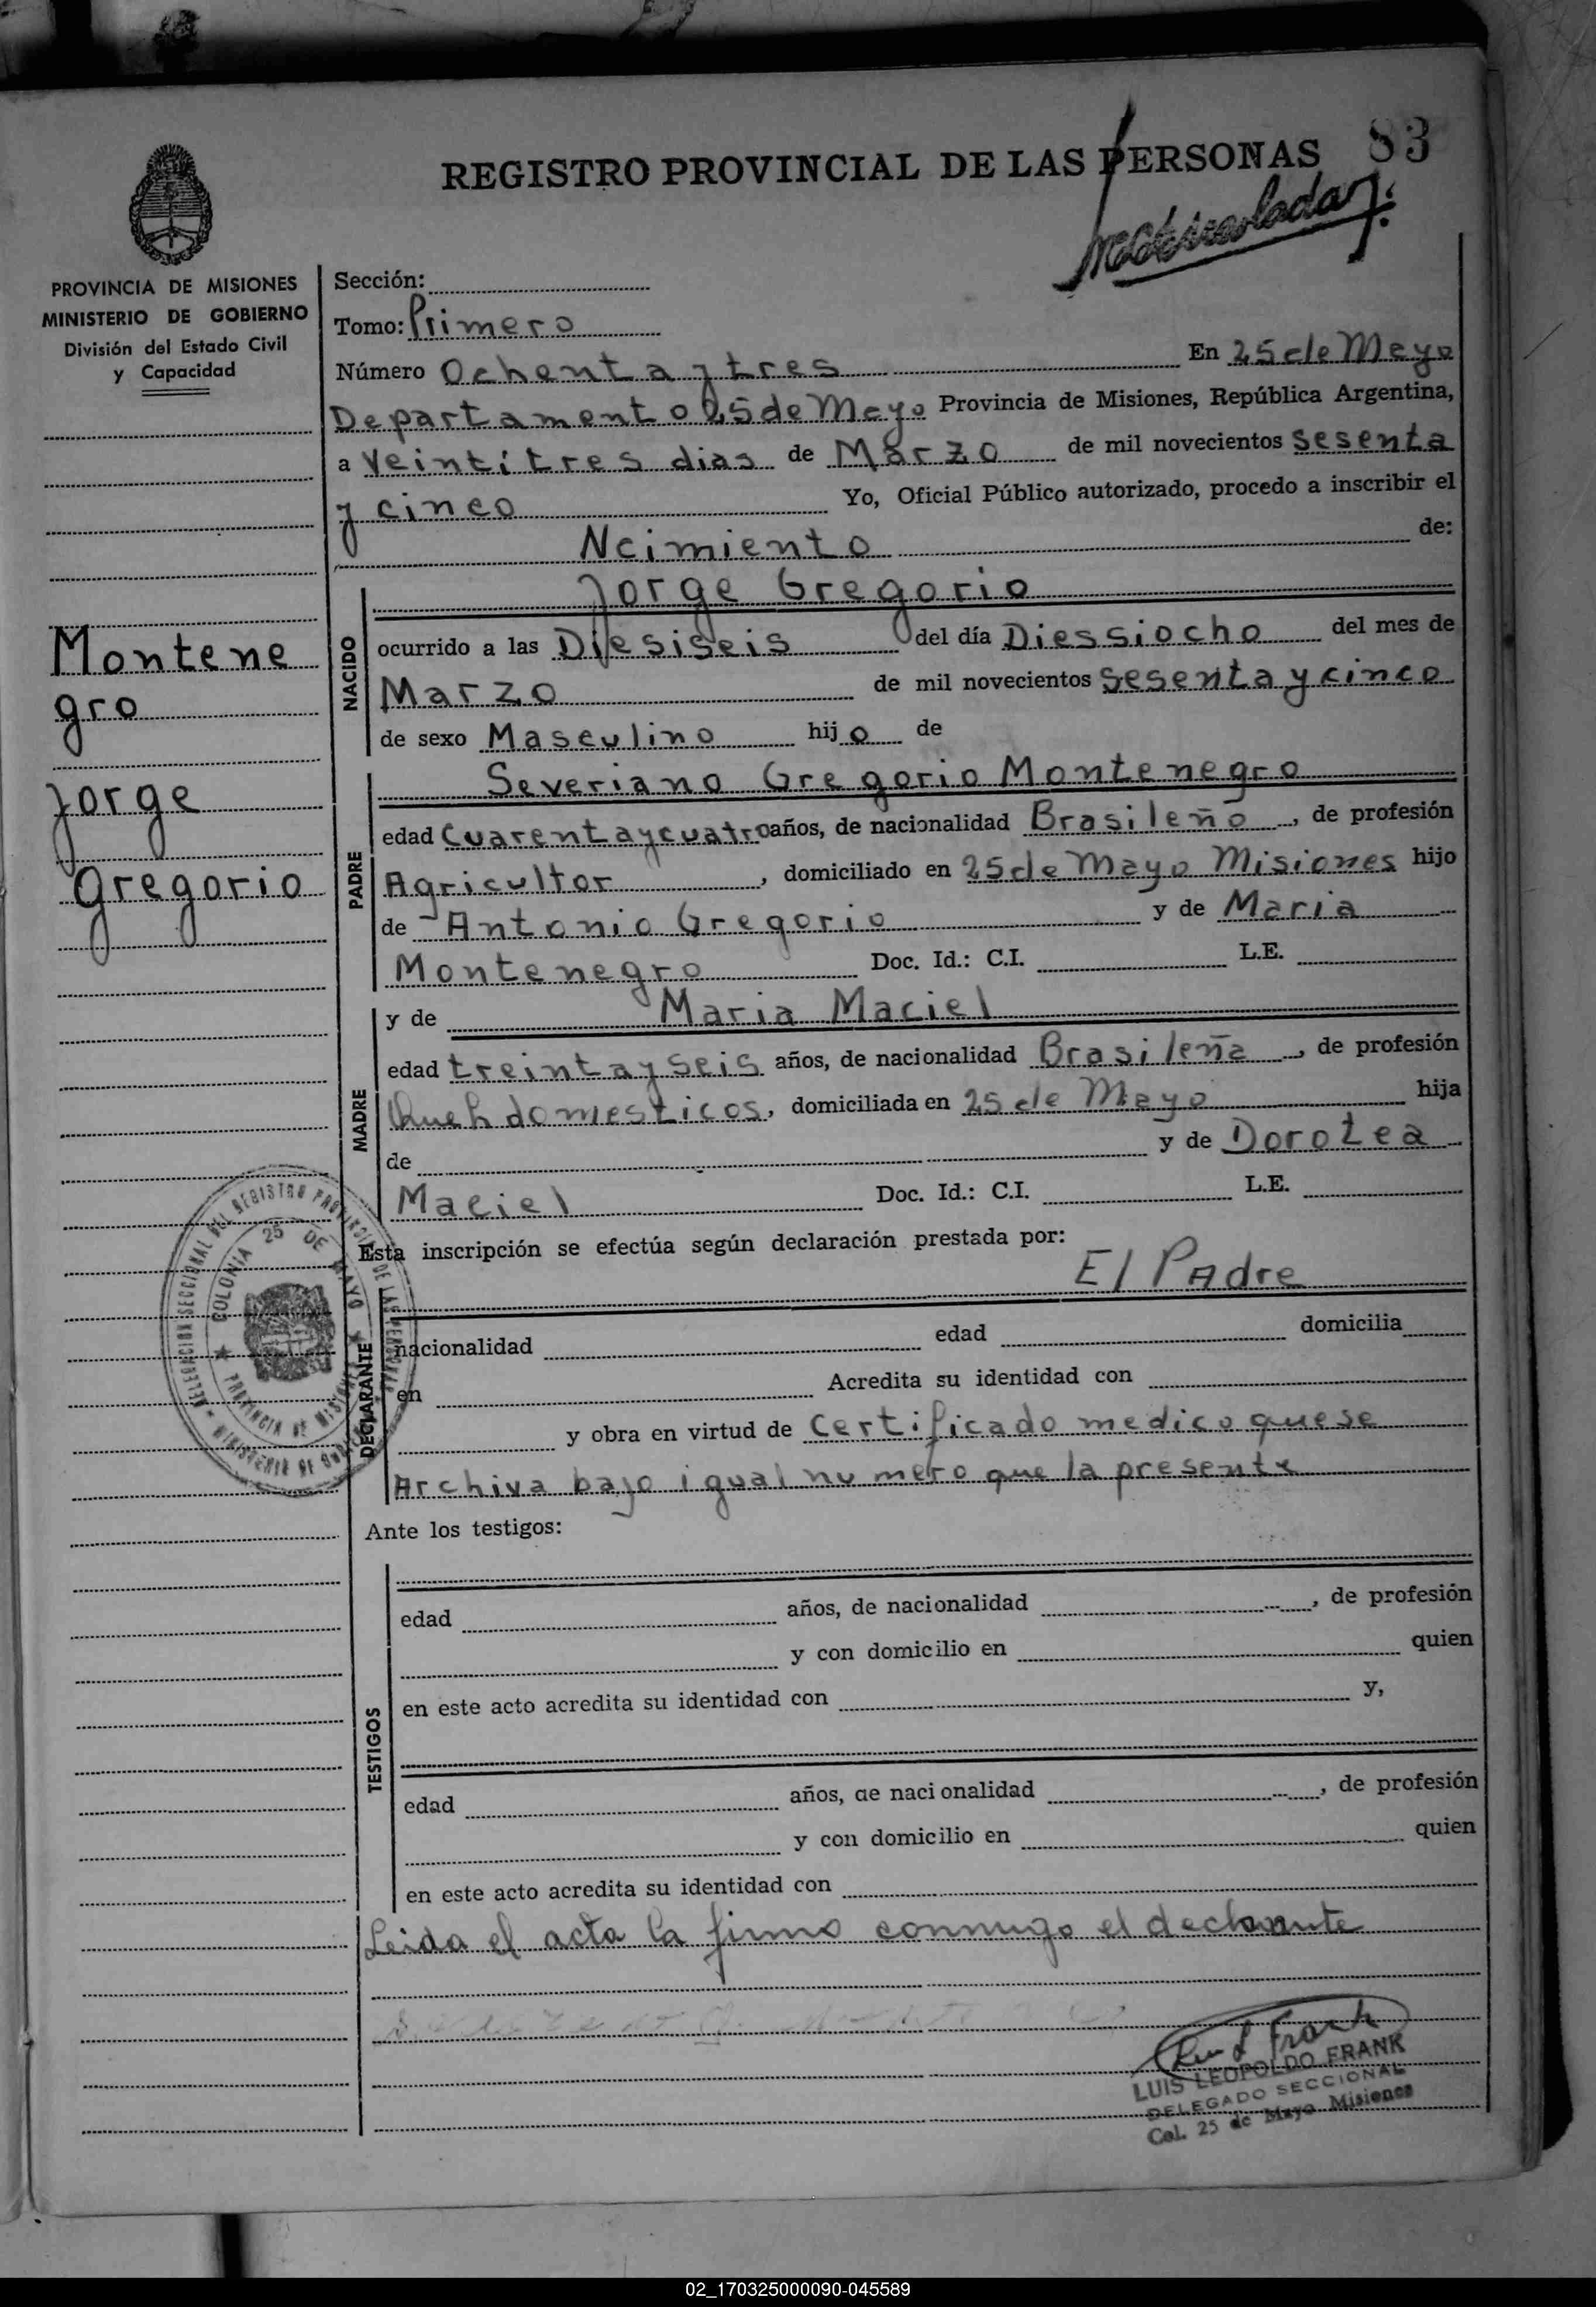 REGISTRO PROVINCIAL DE LAS PERSONAS 83
PROVINCIA DE MISIONES
MINISTERIO DE GOBIERNO
División del Estado Civil
y Capacidad
Sección:
Tomo: Primero
Número Ochenta y tres En 25 de Mayo
Departamento 25 de Mayo Provincia de Misiones, República Argentina,
a Veintitres dias de Marzo de mil novecientos sesenta
y cinco Yo, Oficial Público autorizado, procedo a inscribir el
Ncimiento de:
Montene
gro
Jorge
Gregorio
NACIDO
Jorge Gregorio
ocurrido a las Diesiseis del día Diessiocho del mes de
Marzo de mil novecientos sesenta y cinco
de sexo Masculino hijo de
PADRE
Severiano Gregorio Montenegro
edad Cuarenta y cuatro años, de nacionalidad Brasileño, de profesión
Agricultor, domiciliado en 25 de Mayo Misiones hijo
de Antonio Gregorio y de Maria
Montenegro Doc. Id.: C.I. L.E.
MADRE
y de Maria Maciel
edad treinta y seis años, de nacionalidad Brasileña, de profesión
domesticos, domiciliada en 25 de Mayo hija
de y de Dorotea
Maciel Doc. Id.: C.I. L.E.
Esta inscripción se efectúa según declaración prestada por:
DECLARANTE
El Padre
nacionalidad edad domicilia
en Acredita su identidad con
y obra en virtud de Certificado medico que se
Archiva bajo igual numero que la presente
DELEGACION SECCIONAL DEL REGISTRO PROVINCIAL DE LAS PERSONAS
COLONIA 25 DE MAYO
PROVINCIA DE MISIONES
Ante los testigos:
TESTIGOS
edad años, de nacionalidad, de profesión
y con domicilio en quien
en este acto acredita su identidad con y,
edad años, de nacionalidad, de profesión
y con domicilio en quien
en este acto acredita su identidad con
Leida el acta la firma conmigo el declarante
LUIS LEOPOLDO FRANK
DELEGADO SECCIONAL
Col. 25 de Mayo Misiones
02_170325000090-045589